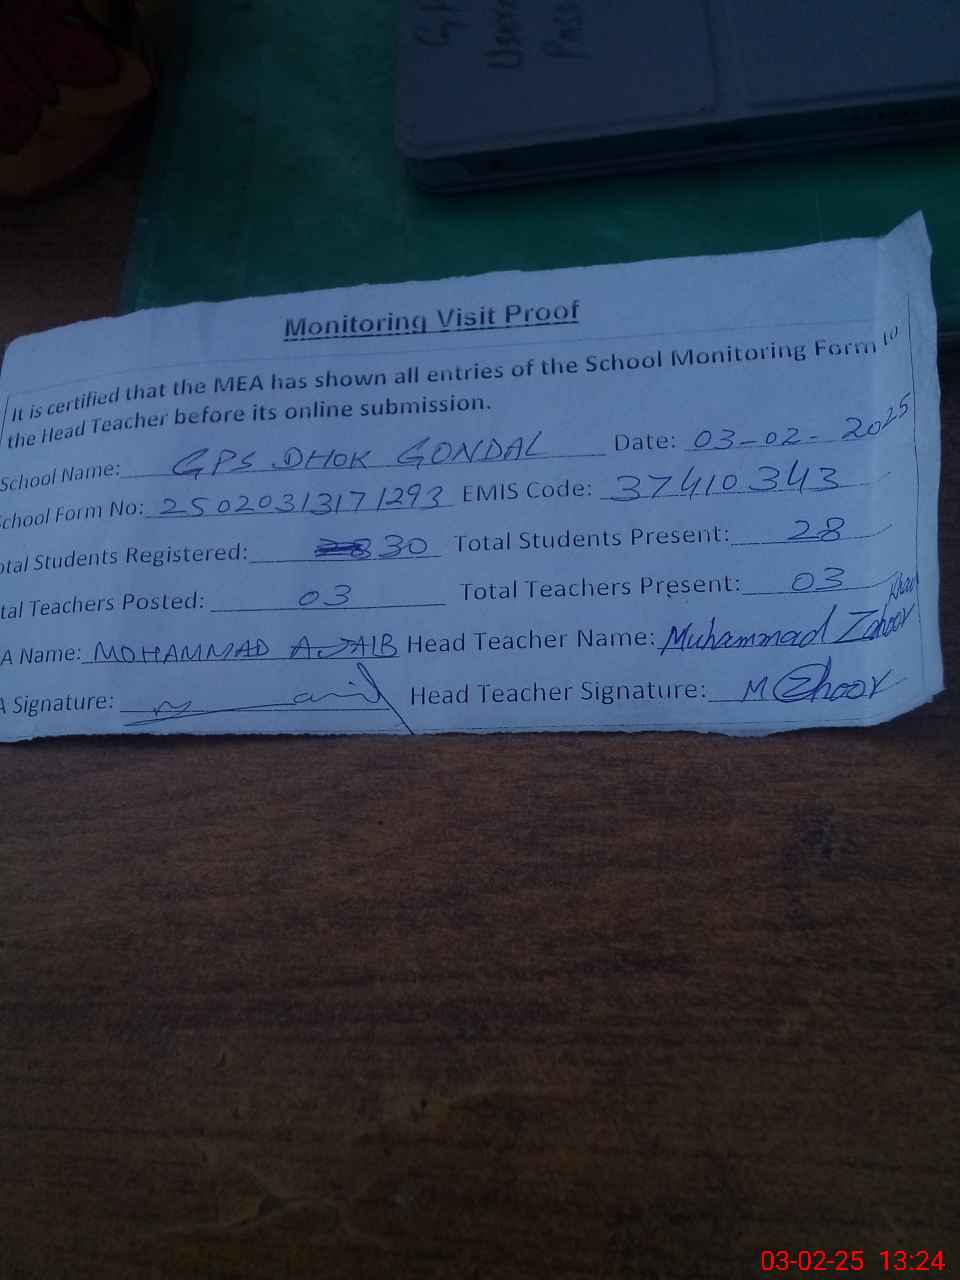 GH
User
Pass
Monitoring Visit Proof
It is certified that the MEA has shown all entries of the School Monitoring Form to
the Head Teacher before its online submission.
School Name: GPS DHOK GONDAL Date: 03-02-2025
School Form No: 25020313171293 EMIS Code: 37410343
otal Students Registered: 30 Total Students Present: 28
tal Teachers Posted: 03 Total Teachers Present: 03
A Name: MOHAMMAD AJAIB Head Teacher Name: Muhammad Zahoor Khan
A Signature: Head Teacher Signature: M Zahoor
03-02-25 13:24